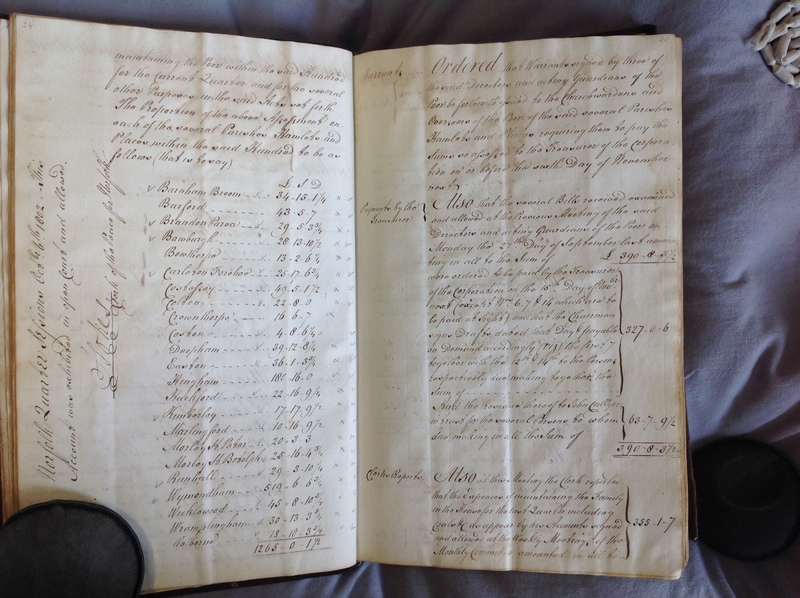 24
maintaining the Poor within the said Hundred
for the Current Quarter and for the several
other Purposes in the said Acts set forth
The Proportion of the above Assessment on
each of the several Parishes Hamlets and
Places within the said Hundred to be as
follows (that is to say)
£ S D
Barnham Broom 34-15-1¼
Barford 43-5-7
Brandon Parva 29-5-3¾
Bawburgh 28-13-10½
Bowthorpe 13-2-6¾
Carleton Forehoe 25-17-6¾
Costessey 49-5-1½
Colton 22-8-0
Crownthorpe 16-6-7
Coston 4-8-6¼
Deopham 39-12-8¼
Easton 36-1-3¾
Hingham 180-16-0
Hackford 22-16-9¼
Kimberley 17-17-9½
Marlingford 10-16-9½
Morley St. Peter 20-3-3
Morley St. Botolph 23-16-4¾
Runhall 29-3-10¼
Wymondham 519-6-6¾
Wicklewood 45-8-10¾
Wramplingham 30-13-3¾
Welborne 18-10-3¾
1265-0-1½
Norfolk Quarter Sessions Octr. 6th 1802 This
Account was exhibited in open Court and allowed
Clerk of the Peace for Norfolk
Warrants
Ordered that Warrants signed by three of
the said Directors and acting Guardians of the
Poor be forthwith issued to the Churchwardens and
Overseers of the Poor of the said several Parishes
Hamlets and Places requiring them to pay the
Sums so assessed to the Treasurer of the Corpora-
tion on or before the sixth Day of November
next
Payments by the
Treasurer
Also that the several Bills received examined
and allowed at the Previous Meeting of the said
Directors and acting Guardians of the Poor on
Monday the 27th Day of September last amoun-
ting in all to the Sum of £ 390-8-3½
were ordered to be paid by the Treasurer
of the Corporation on the 10th Day of Novr.
next (except No. 6, 7 & 14 which are to
be paid at sight) and that the Chairman
sign Drafts dated that Day & payable
on Demand accordingly
together with the 12th & 14th to the Persons
respectively due making together the
Sum of 327-0-6
And the Residue thereof to John Culley
in trust for the several Persons to whom
due making in all the Sum of 63-7-9½
390-8-3½
Clerks Reports
Also at this Meeting the Clerk reported
that the Expences of maintaining the Family
in the House for the last Quarter including
Coals &c. as appear by his Accounts signed
and allowed at the Weekly Meetings of the
Monthly Committee amounted in all to 358-1-7